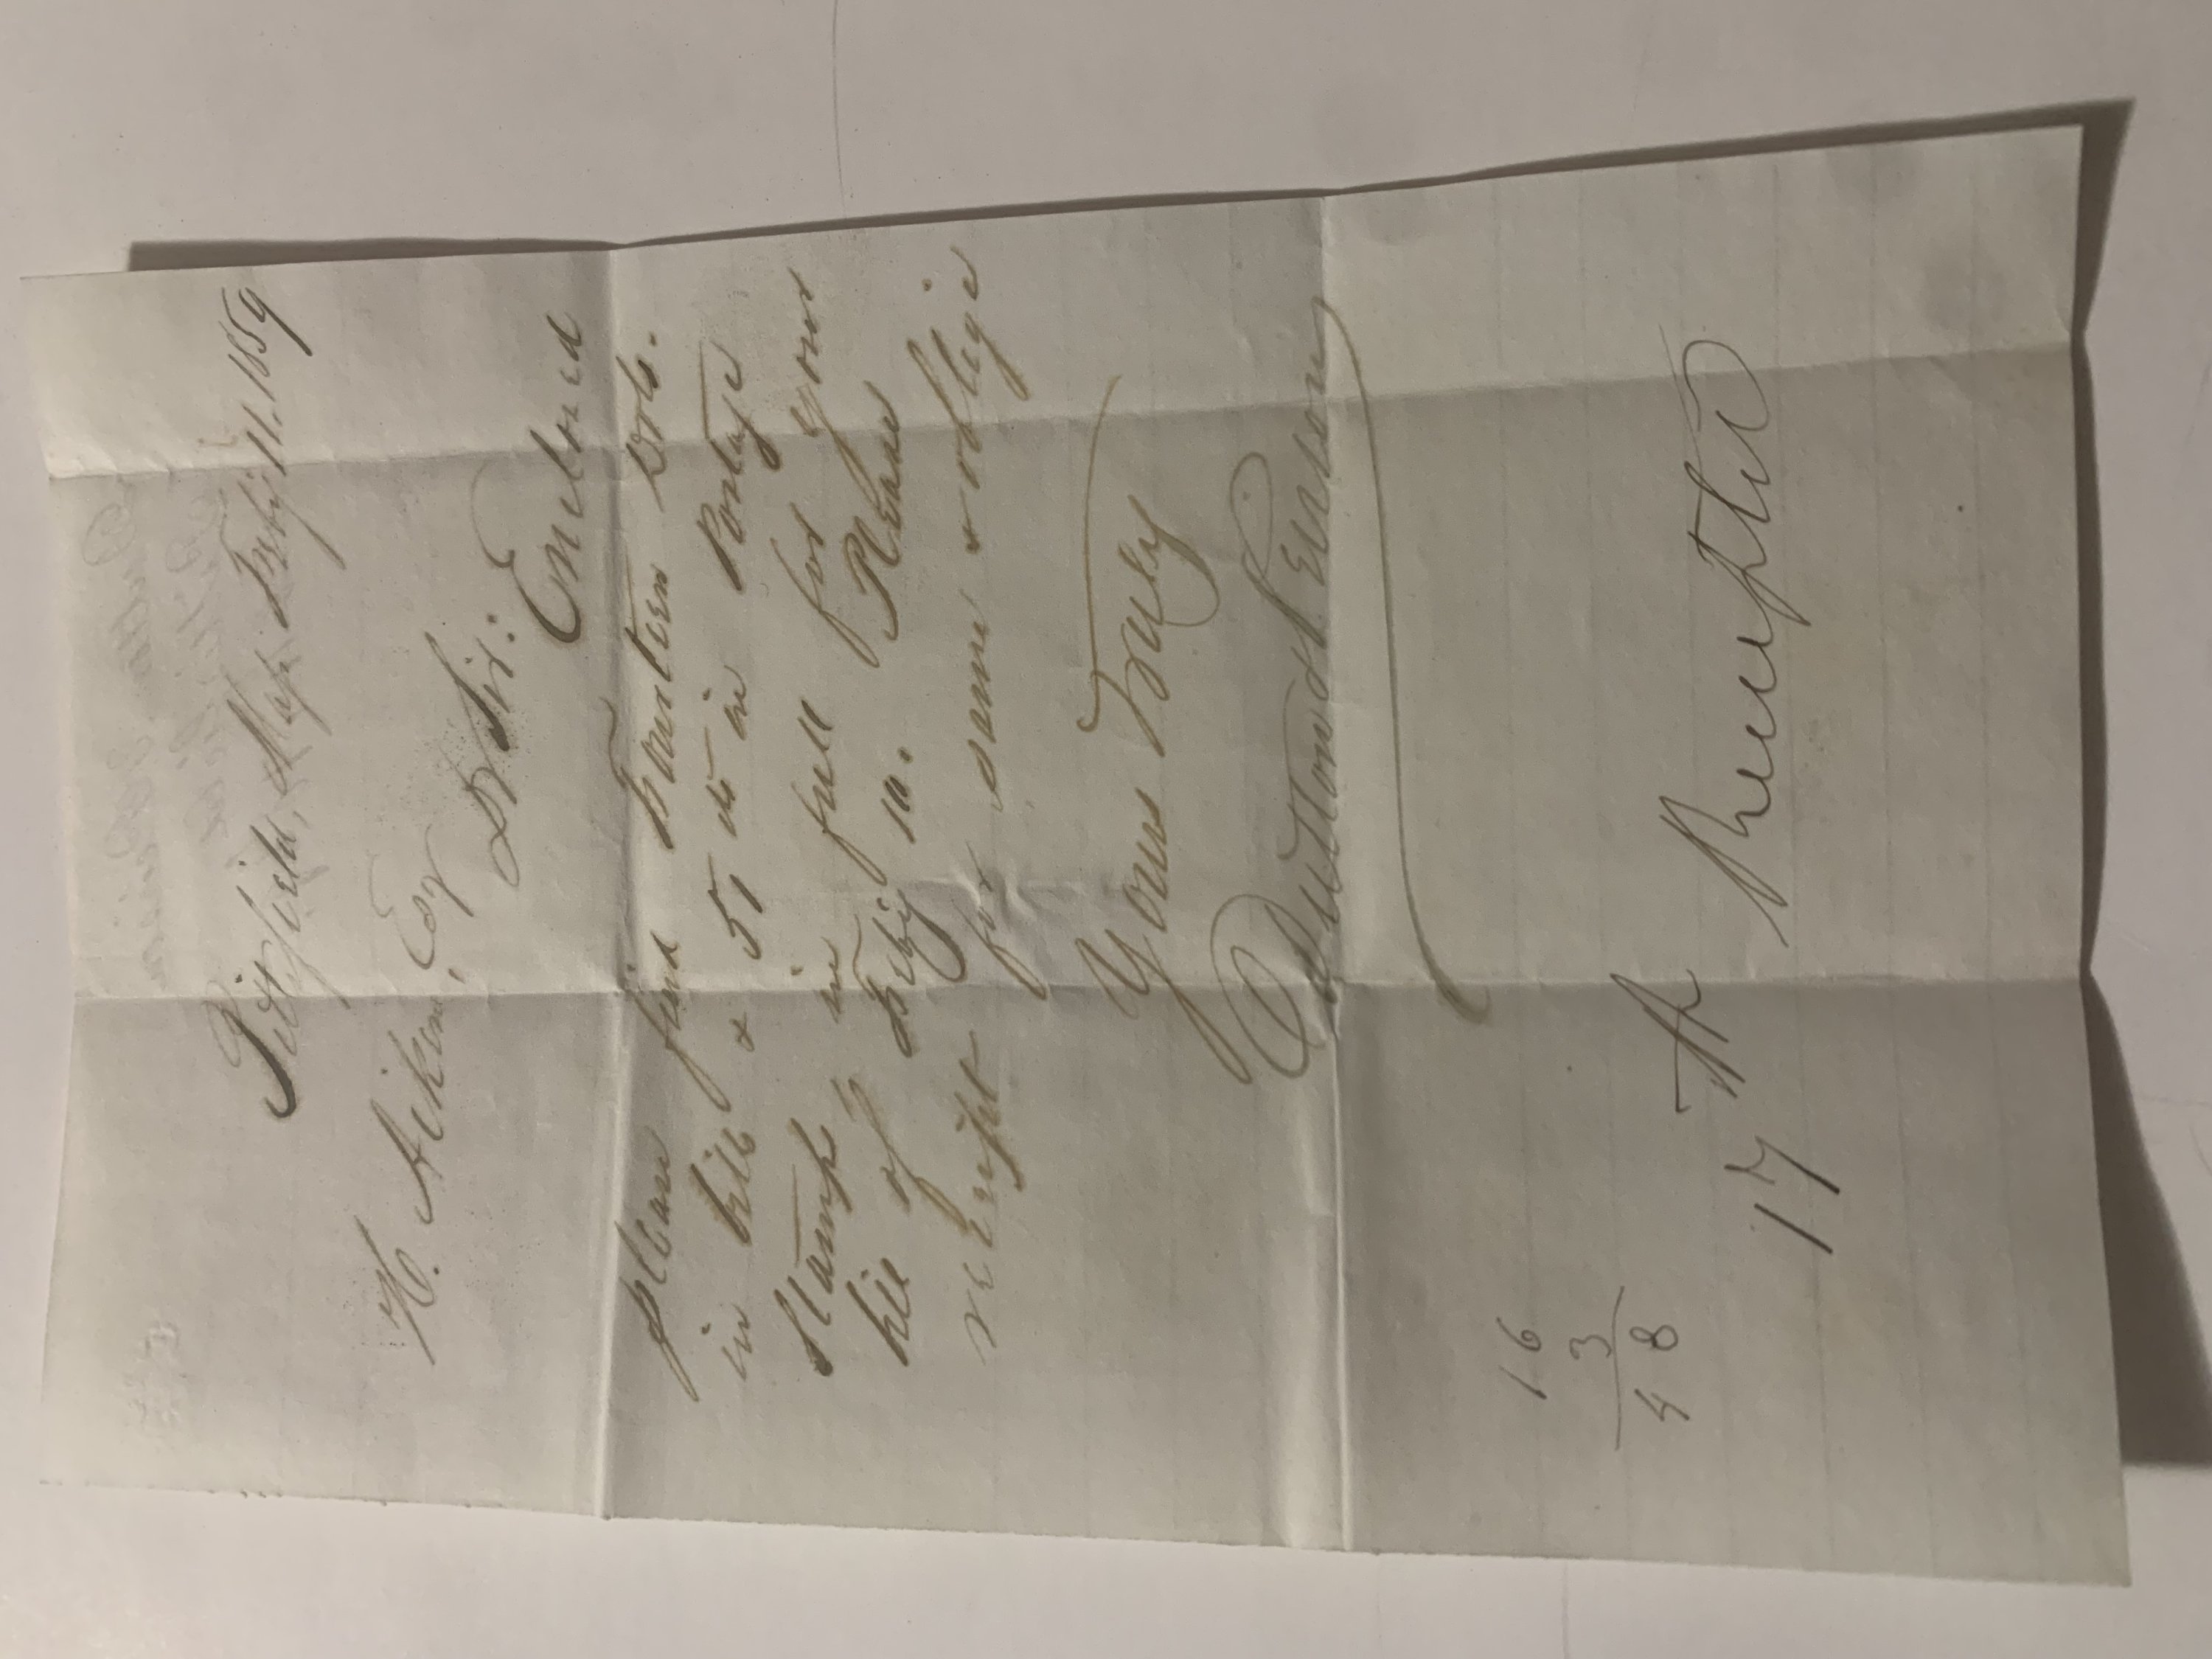 Pittsfield, Mass. Feby 11. 1859
H. Aiken, Esq
D Sir: Enclosed
please find Fourteen Dols.
in bill & 51 cts in Postage
Stamps in full for your
bill of Feby 10. Please
receipt for same & oblige
Yours Truly
16
3
48
17th Receipted